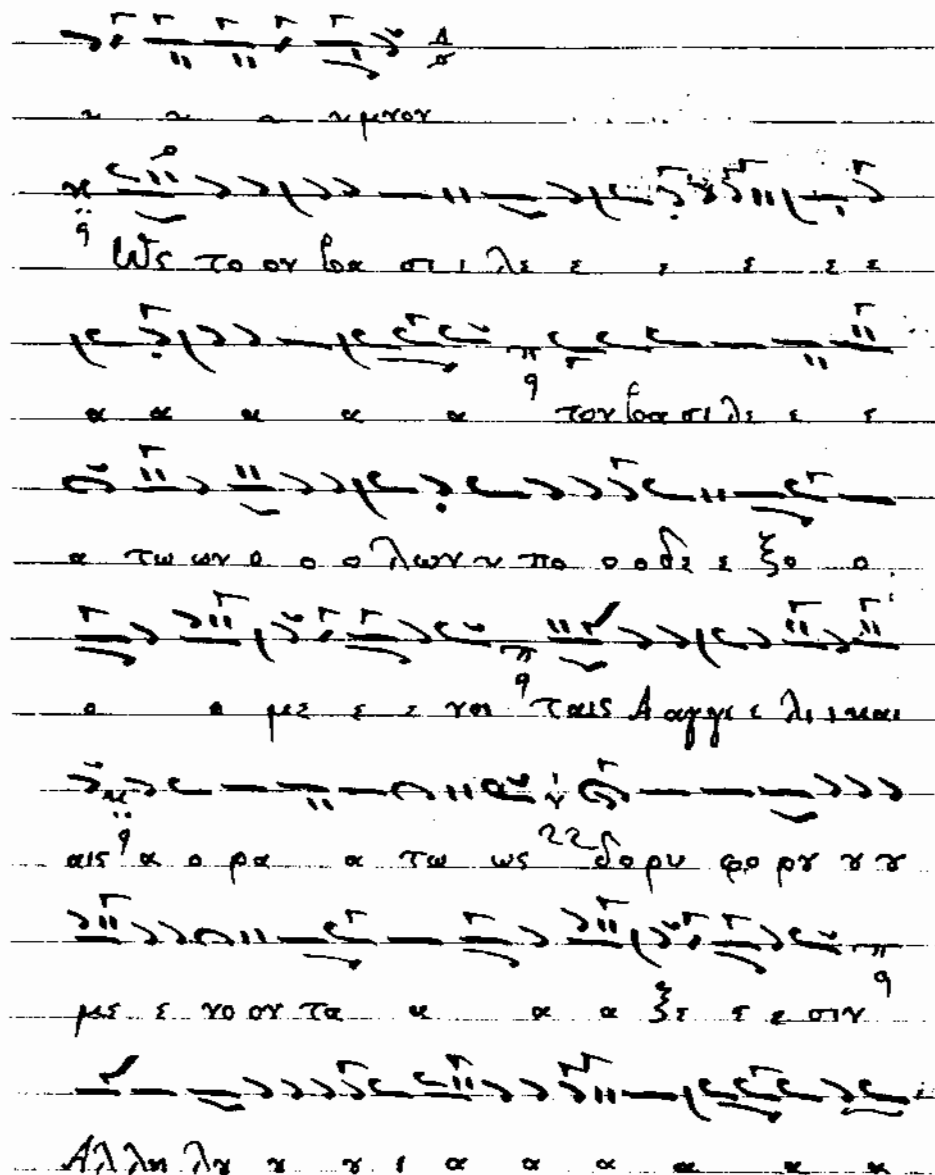 α α α υμνον
Ὡς το ον βα σι ι λε ε ε ε ε ε
α α α α α τον βα σι λε ε ε
α τω ων ο ο ο λων υ πο ο ο δε ε ξο ο
ο ο με ε ε νοι ταις Α αγγε ε λι ι και
αις α ο ρα α τω ως δο ρυ φο ρου ου ου
με ε νο ον τα α α α ξε ε ε σιν
Αλ λη λου ου ου ι α α α α α